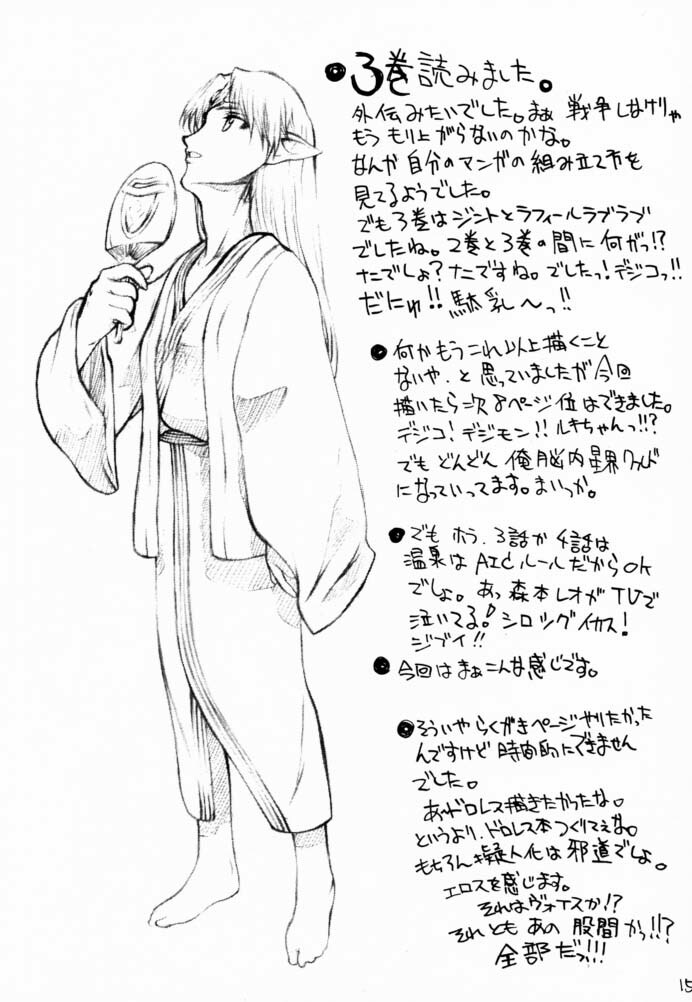 ●3巻読みました。
外伝みたいでした。まぁ 戦争しなけりゃ
もう もり上がらないのかな。
なんか 自分のマンガの組み立て方を
見てるようでした。
でも3巻はジントとラフィールラブラブ
でしたね。2巻と3巻の間に何がっ!?
なにでしょ?なにですね。でしたっ!デジコっ!!
だにゅ!!駄乳〜っ!!
●何かもうこれ以上描くこと
ないや.と思っていましたが今回
描いたら 8ページ位はできました。
デジコ!デジモン!!ルキちゃんっ!!?
でもどんどん 俺脳内星界ワールド
になっていってます。まいっか。
●でもホラ.3話か4話は
温泉はAICルールだからok
でしょ。あっ森本レオがTVで
泣いてる!シロツグイカス!
ジブイ!!
●今回はまぁこんな感じです。
●そういやらくがきページやりたかった
んですけど時間的にできません
でした。
あ、ドロレス描きたかったな。
というより、ドロレス本つくりてぇな。
もちろん擬人化は邪道でしょ。
エロスを感じます。
それはヴォイスか!?
それともあの股間かっ!!?
全部だっ!!!
15